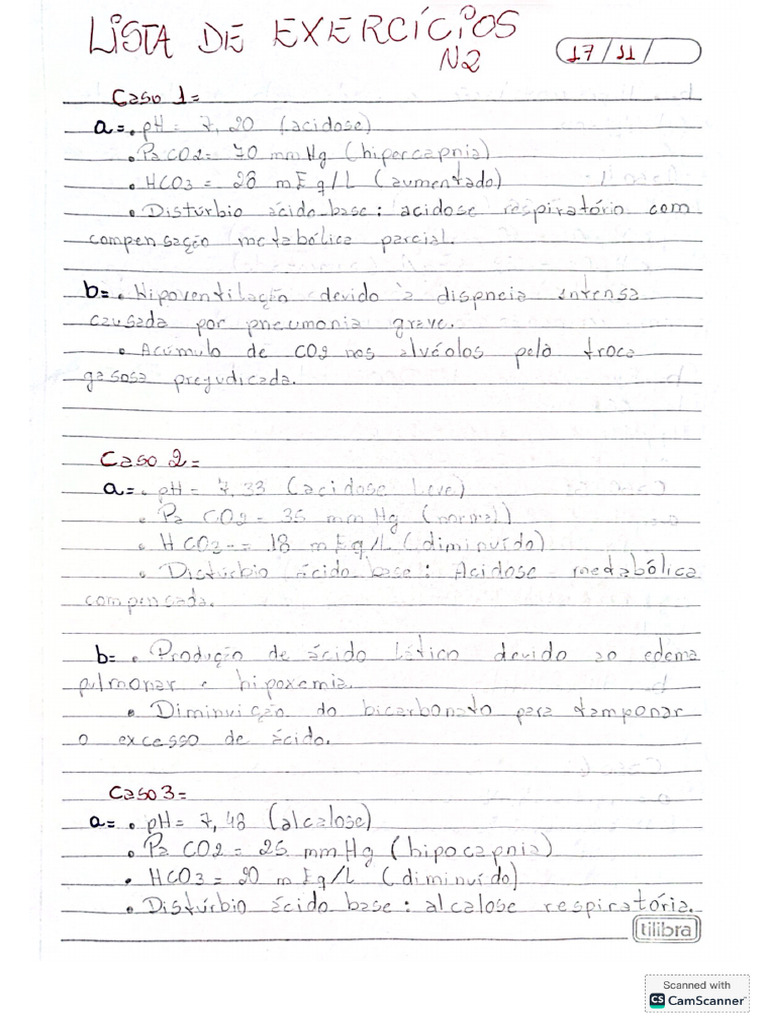 LISTA DE EXERCÍCIOS
N2
17/11/
Caso 1=
a= • pH = 7,20 (acidose)
• Pa CO2 = 70 mmHg (hipercapnia)
• HCO3 = 28 mEq/L (aumentado)
• Distúrbio ácido base: acidose respiratório com
compensação metabólica parcial.
b= • Hipoventilação devido à dispneia intensa
causada por pneumonia grave.
• Acúmulo de CO2 nos alvéolos pela troca
gasosa prejudicada.
Caso 2=
a= • pH = 7,33 (acidose leve)
• Pa CO2 = 35 mmHg (normal)
• HCO3- = 18 mEq/L (diminuído)
• Distúrbio ácido base: Acidose metabólica
compensada.
b= • Produção de ácido lático devido ao edema
pulmonar e hipoxemia.
• Diminuição do bicarbonato para tamponar
o excesso de ácido.
Caso 3=
a= • pH = 7,48 (alcalose)
• Pa CO2 = 25 mmHg (hipocapnia)
• HCO3 = 20 mEq/L (diminuído)
• Distúrbio ácido base: alcalose respiratória.
tilibra
Scanned with
CS CamScanner